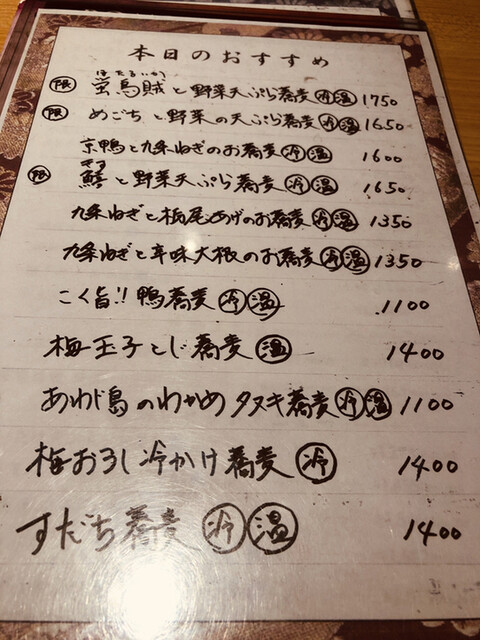 本日のおすすめ
ほたるいか
限 蛍烏賊と野菜天ぷら蕎麦 冷 温 1750
限 めごちと野菜の天ぷら蕎麦 冷 温 1650
京鴨と九条ねぎのお蕎麦 冷 温 1600
限 鱚と野菜天ぷら蕎麦 冷 温 1650
九条ねぎと栃尾あげのお蕎麦 冷 温 1350
九条ねぎと辛味大根のお蕎麦 冷 温 1350
こく旨!! 鴨蕎麦 冷 温 1100
梅玉子とじ蕎麦 温 1400
あわじ島のわかめタヌキ蕎麦 冷 温 1100
梅おろし冷かけ蕎麦 冷 1400
すだち蕎麦 冷 温 1400